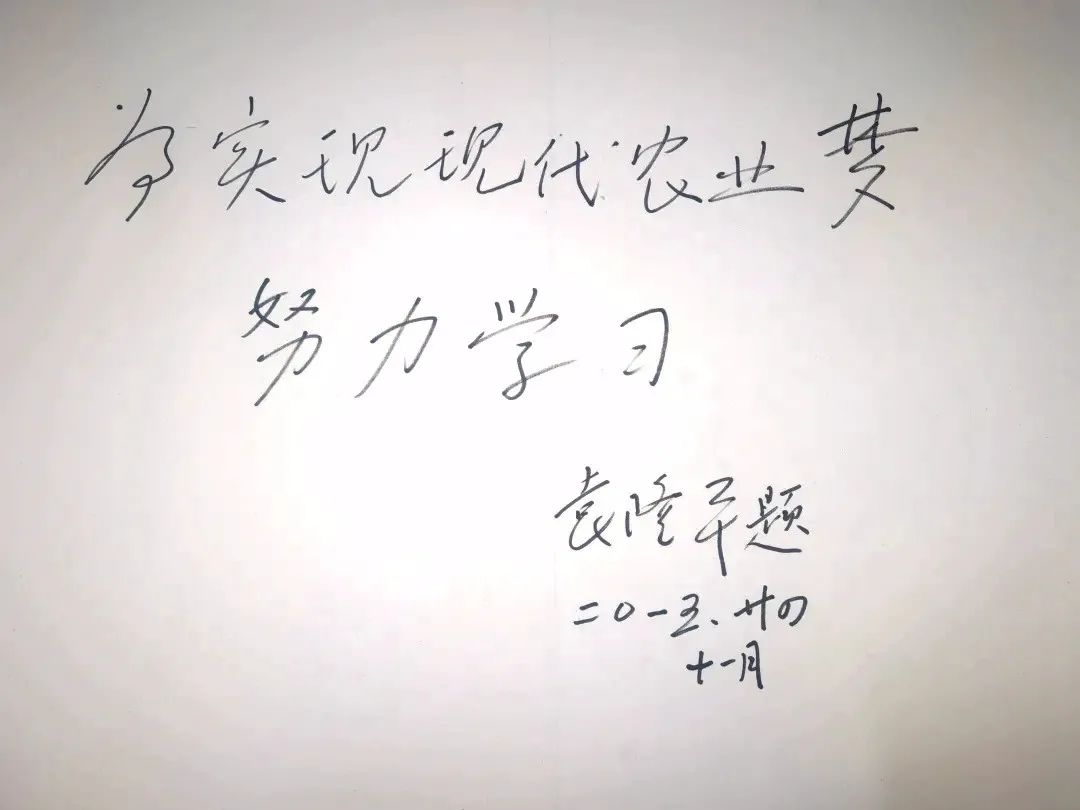 为实现现代农业梦
努力学习
袁隆平题
二〇一五、廿四
十一月